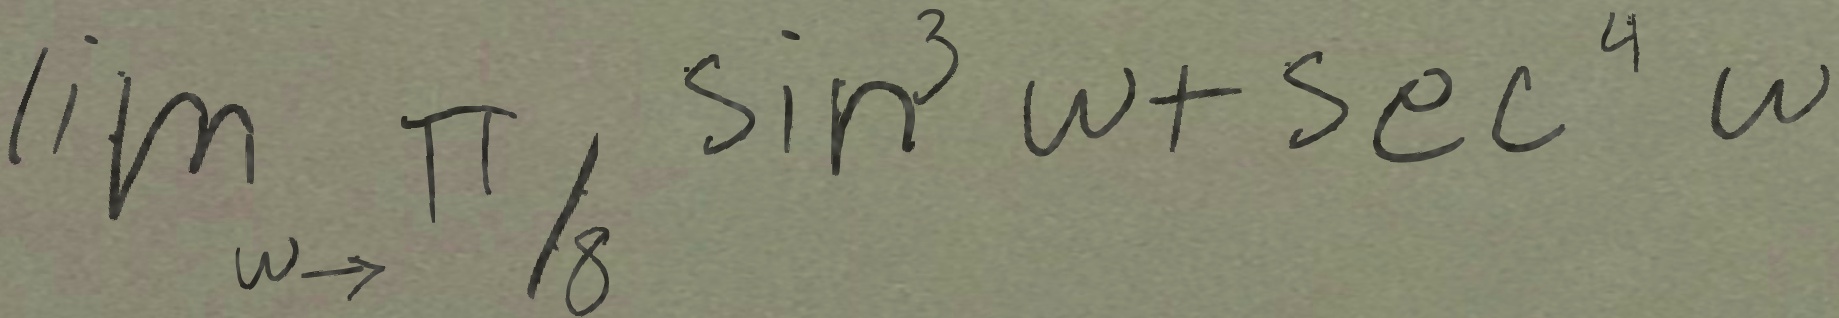 lim w→π/8 sin³ w + sec⁴ w